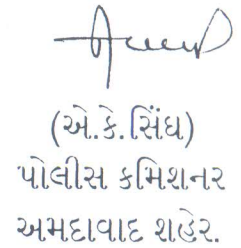 (એ.કે.સિંઘ)
પોલીસ કમિશનર
અમદાવાદ શહેર.